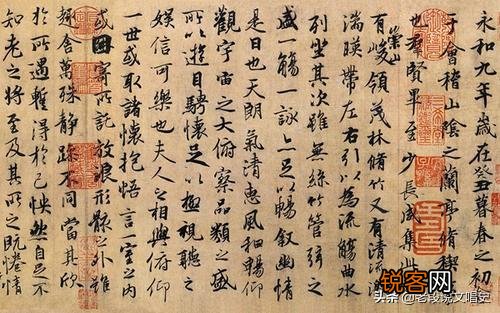 永和九年歲在癸丑暮春之初
于會稽山陰之蘭亭脩稧
也羣賢畢至少長咸集此
崇山
有峻領茂林脩竹又有清流激
湍暎帶左右引以為流觴曲水
列坐其次雖無絲竹管弦之
盛一觴一詠亦足以暢叙幽情
是日也天朗氣清惠風和暢仰
觀宇宙之大俯察品類之盛
所以遊目騁懷足以極視聽之
娛信可樂也夫人之相與俯仰
一世或取諸懷抱悟言一室之內
或因寄所託放浪形骸之外雖
趣舍萬殊靜躁不同當其欣
於所遇暫得於己怏然自足不
知老之將至及其所之既惓情
锐客网
头条@老段说文唱史